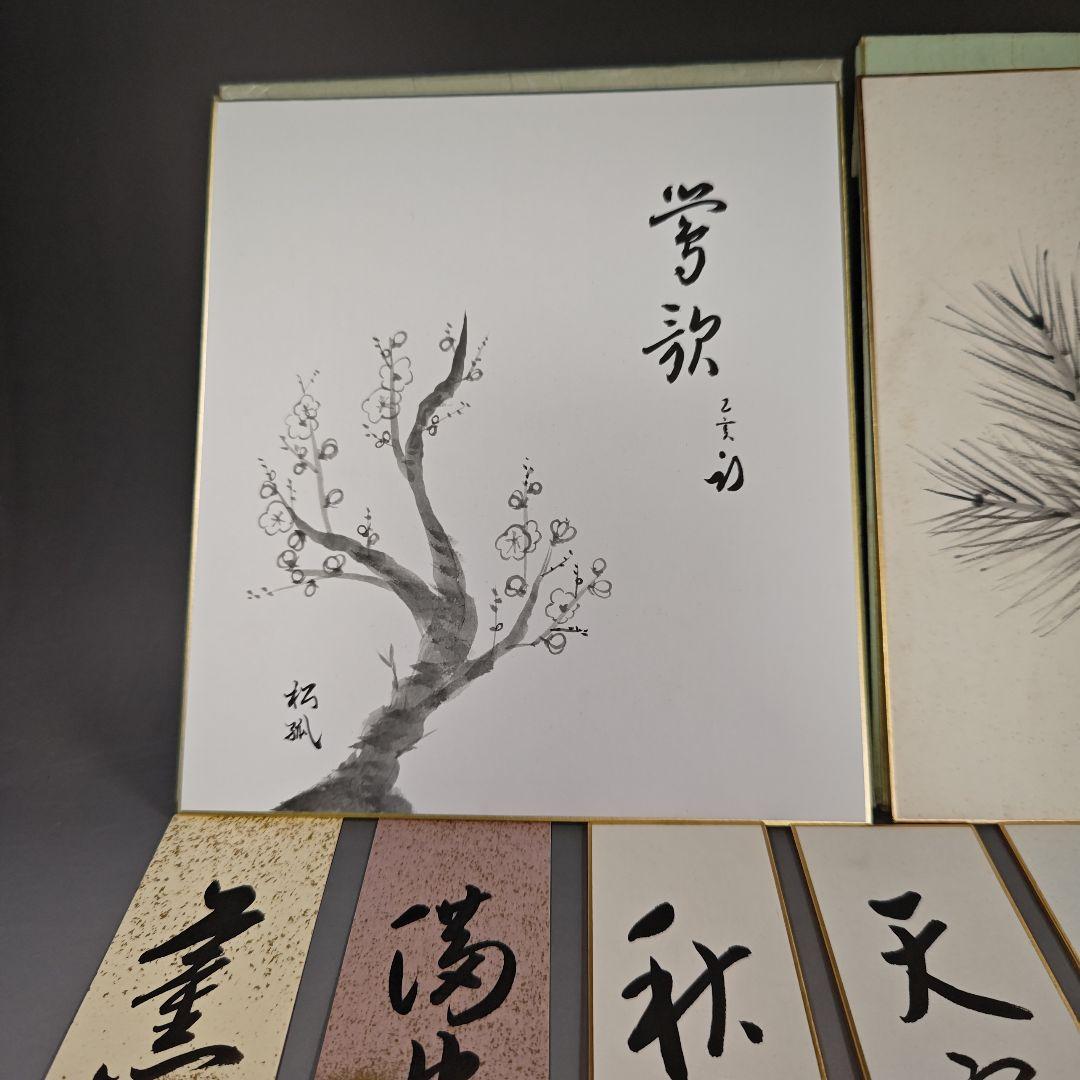 鶯歌
乙亥初
松
薫
満
秋
天